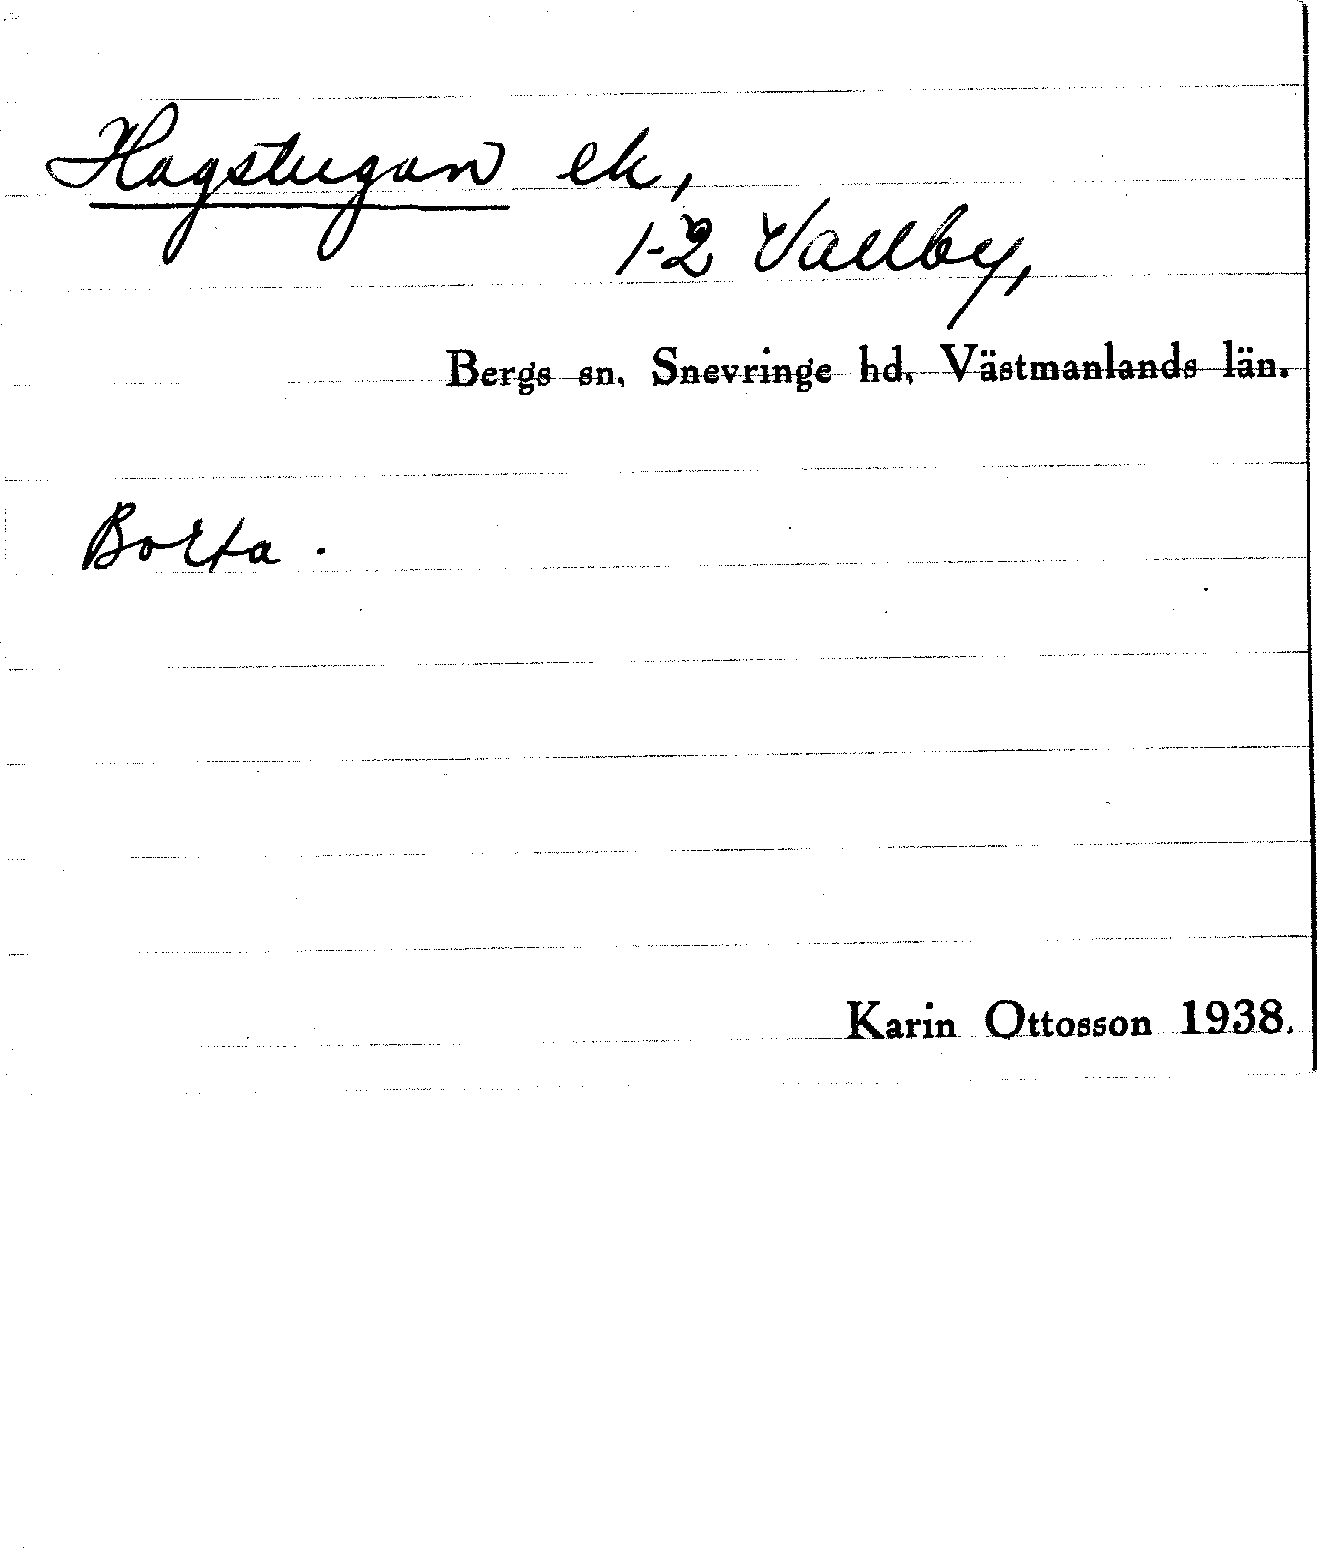 Hagstugan ek,
1-2 Vallby,
Bergs sn, Snevringe hd, Västmanlands län.
Borta.
Karin Ottosson 1938.